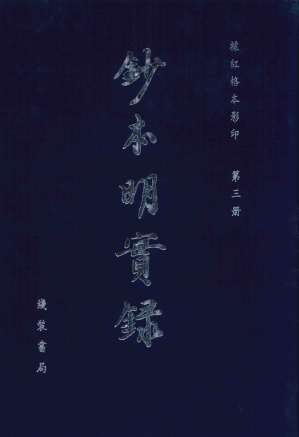 據紅格本影印　第三册
鈔本明實錄
綫裝書局